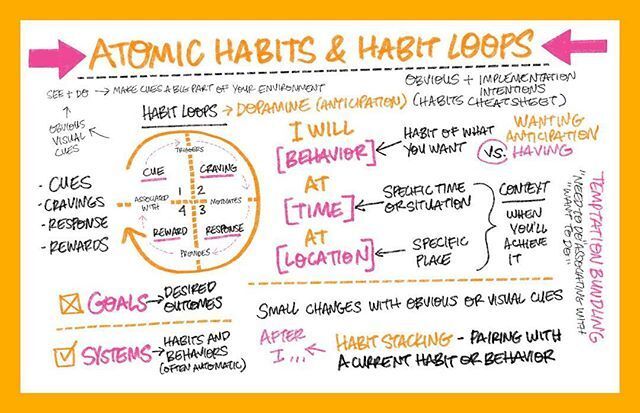 ATOMIC HABITS & HABIT LOOPS
SEE + DO → MAKE CUES A BIG PART OF YOUR ENVIRONMENT
OBVIOUS VISUAL CUES
OBVIOUS + IMPLEMENTATION
INTENTIONS
(HABITS CHEATSHEET)
HABIT LOOPS → DOPAMINE (ANTICIPATION)
- CUES
- CRAVINGS
- RESPONSE
- REWARDS
TRIGGERS
CUE
CRAVING
1 2
4 3
ASSOCIATED WITH
MOTIVATES
REWARD
RESPONSE
PROVIDES
I WILL
[BEHAVIOR]
HABIT OF WHAT
YOU WANT
WANTING
ANTICIPATION
VS. HAVING
AT
[TIME]
SPECIFIC TIME
OR SITUATION
AT
[LOCATION]
SPECIFIC
PLACE
CONTEXT
WHEN
YOU'LL
ACHIEVE
IT
TEMPTATION BUNDLING
"NEED TO DO" ASSOCIATING WITH
"WANT TO DO"
GOALS → DESIRED
OUTCOMES
SYSTEMS → HABITS AND
BEHAVIORS
(OFTEN AUTOMATIC)
SMALL CHANGES WITH OBVIOUS OR VISUAL CUES
AFTER
I...
HABIT STACKING - PAIRING WITH
A CURRENT HABIT OR BEHAVIOR